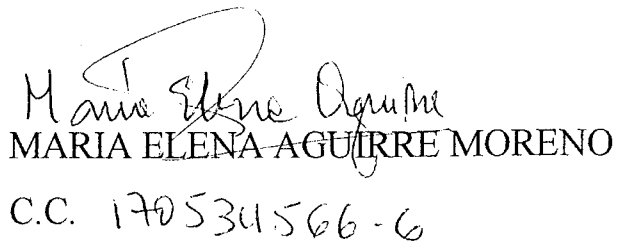 Maria Elena Aguirre
MARIA ELENA AGUIRRE MORENO
C.C. 170534566-6